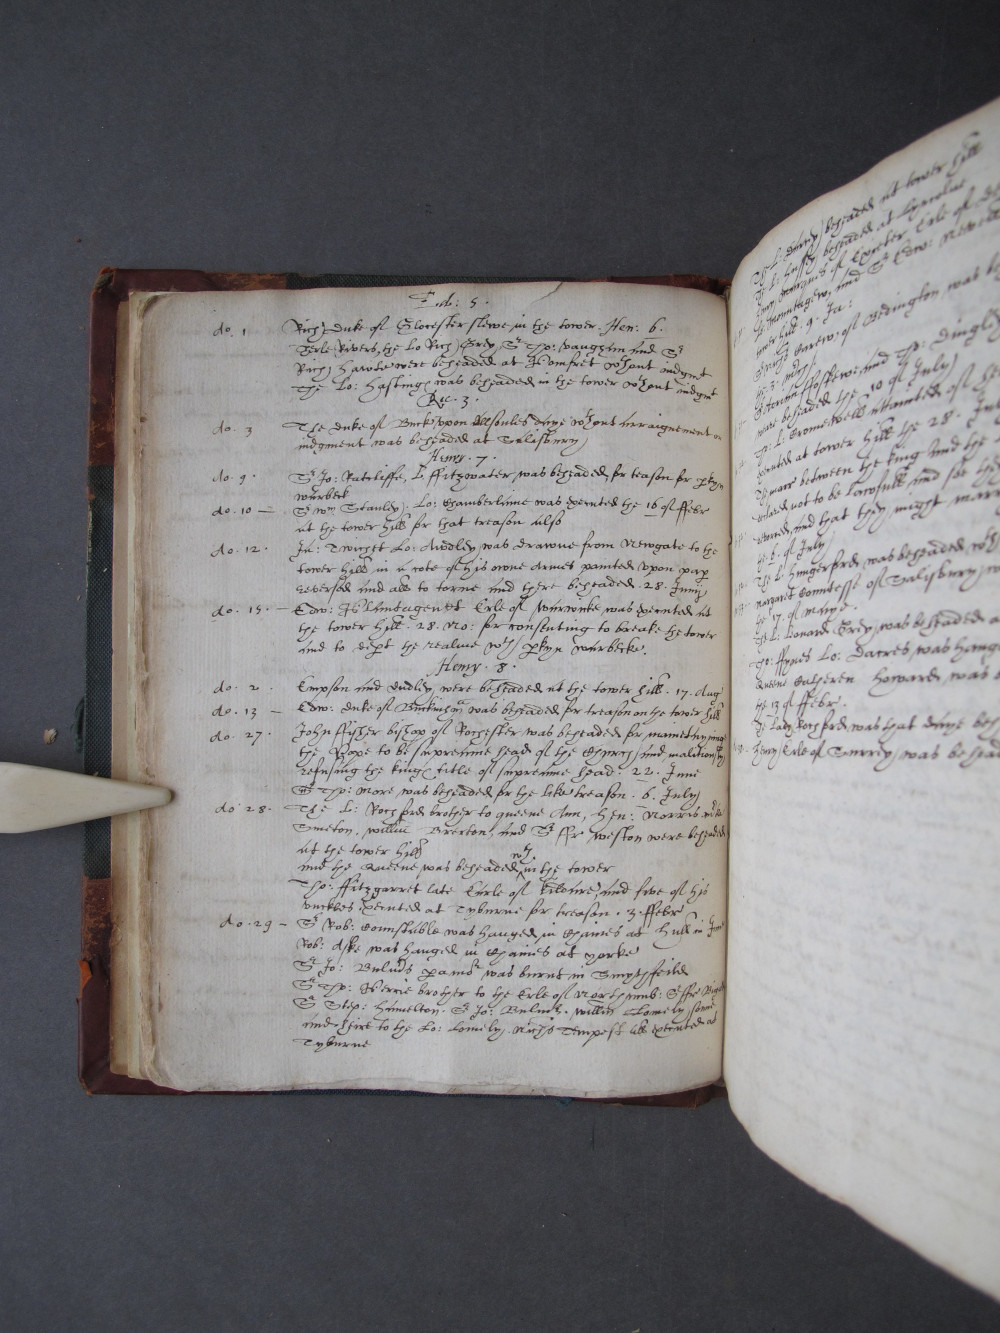 Ed: 5.
Ao. 1 Rich: Duke of Glocester slewe in the tower Hen. 6.
Therle Rivers, the Lo Rich: Grey, Sr Tho: Vaughan and Sr
Rich: Hawte were beheaded at Pomfret wthout iudgmt
The Lo: Hastings was beheaded in the tower wthout iudgmt
Ric. 3.
Ao. 3 The Duke of Buck: vpon Allsoules daye wthout arraignement or
iudgment was beheaded at Salisbury
Henry. 7.
Ao. 9. Sr Jo: Ratcliffe, L. ffitzwater was beheaded, for treason for pkyn
warbeck
Ao. 10 Sr Wm Stanley: Lo: Chamberlaine was executed the 16 of ffebr
at the tower hill for that treason also
Ao. 12. Ja: Twichet Lo: Audley was drawne from Newgate to the
tower hill in a cote of his owne Armes painted vpon pap
reversed and all to torne and there beheaded. 28. Junij
Ao. 15. Edw: Plantagenett Erle of Warwicke was executed at
the tower hill. 28. No: for consenting to breake the tower
and to dept the realme wth pkyn warbecke.
Henry. 8.
Ao. 2. Empson and Dudley were beheaded at the tower hill. 17. Aug
Ao. 13 Edw: duke of Buckingham was beheaded for treason on the tower hill
Ao. 27. John ffisher bishop of Rochester was beheaded for mainteyning
the Pope to be supreme head of the Church, and maliciously
refusing the kings title of supreme head. 22. June
Sr Tho: More was beheaded for the like treason. 6. July
Ao 28. The L: Rochford brother to queene Ann, Hen: Norris, Mark
Smeton, willm Brerton, and Sr ffr Weston were beheaded
at the tower hill
and the Queene was beheaded wth in the tower
Tho: ffitzgarret late Erle of Kildare, and five of his
vnckles executed at Tyburne for treason. 3. ffebr
Ao. 29 Sr Rob: Counstable was hanged in chaines at Hull in June
Rob: Aske was hanged in chaines at yorke
Sr Jo: Bulm's paramour was burnt in Smythfeild
Sr Tho: Percie brother to the Erle of Northumb: Sr ffr Bigod
Sr Step: Hamelton. Sr Jo: Bulm, willm Lomely sonne
and heire to the Lo: Lomely. Nichs Tempest all executed at
Tyburne
The L: Darcy beheaded at tower hill
The L: Hussey beheaded at Lyncolne
Henry Marquis of Exceter Erle of
L: Mountague, and Sr Edw: Nevell
tower hill. 9. Ja:
Sr Nichs Carew of Bedington was
the 3. m
and Tho: Dingley
were beheaded the 10 of July
Tho: L. Cromewell attainted of
executed at tower hill the 28. Ju
The marr between the king and the
not to be lawfull and
and that they might marry
the 6. of July
The L: Hungerford was beheaded wth
Margaret Countesse of Salisbury
the 27. of Maye.
The L: Leonard Grey was beheaded
Tho: ffynes Lo: Dacres was hanged
Queene Catheren Howard was
the 13 of ffebr.
The Lady Rochford was that daye
Henry Erle of Surrey was beheaded